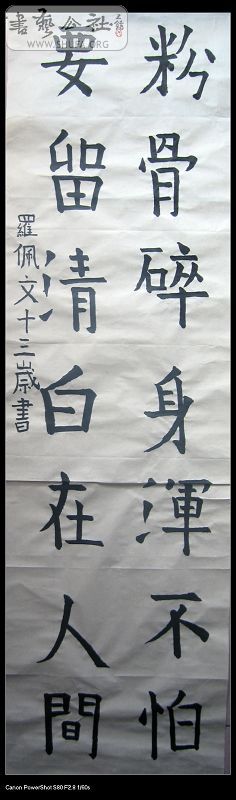 粉骨碎身渾不怕
要留清白在人間
羅佩文十三歲書
書藝公社
WWW.SHUFA.ORG
Canon PowerShot S80 F2.8 1/60s